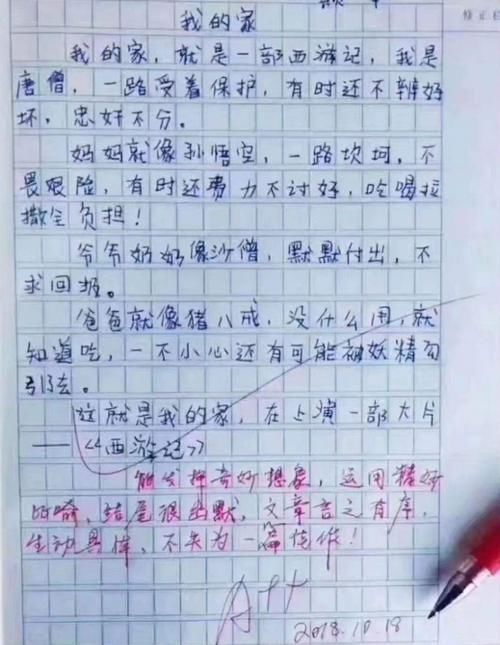 我的家
修正栏
我的家，就是一部西游记，我是
唐僧，一路受着保护，有时还不辨好
坏，忠奸不分。
妈妈就像孙悟空，一路坎坷，不
畏艰险，有时还费力不讨好，吃喝拉
撒全负担！
爷爷奶奶像沙僧，默默付出，不
求回报。
爸爸就像猪八戒，没什么用，就
知道吃，一不小心还有可能被妖精勾
引去。
这就是我的家，在上演一部大片
——《西游记》
能发挥奇妙想象，运用精妙
比喻，结尾很幽默，文章言之有序，
生动具体，不失为一篇佳作！
A++
2018.10.18